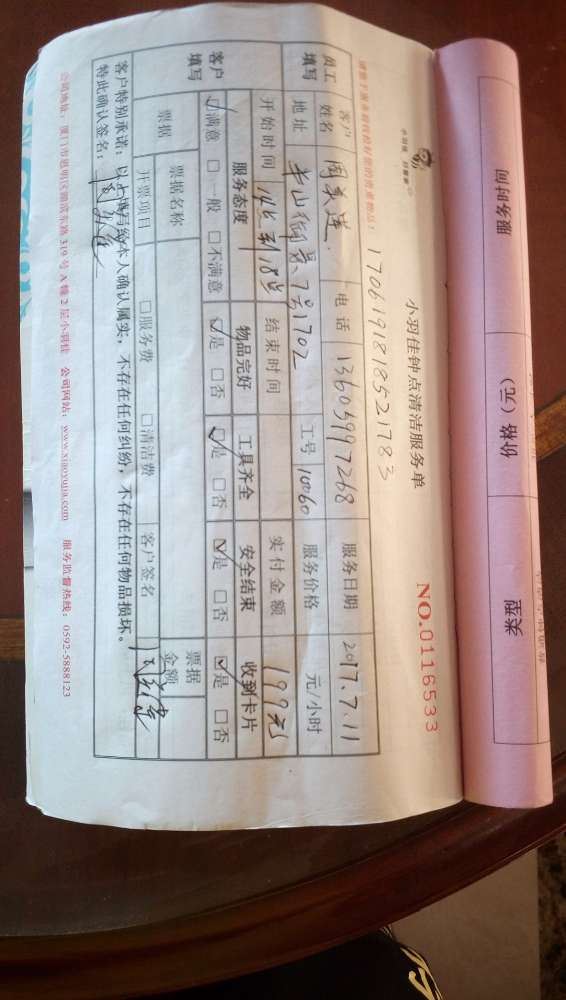 服务时间 价格（元） 类型
小羽佳 好管家
小羽佳钟点清洁服务单
NO.0116533
请勿于服务前收拾好您的贵重物品！
17061918185 21783
员工填写 客户姓名 电话 13605997268 服务日期 2017.7.11
地址 7号1702 工号 10860 服务价格 元/小时
开始时间 14点到18点 结束时间 实付金额 199元
客户填写 服务态度 物品完好 工具齐全 安全结束 收到卡片
☑满意 □一般 □不满意 ☑是 □否 ☑是 □否 ☑是 □否 ☑是 □否
票据 票据名称 票据金额
开票项目 □服务费 □清洁费 客户签名
客户特别承诺：以上填写经本人确认属实，不存在任何纠纷，不存在任何物品损坏。
特此确认签名：
公司地址：厦门市思明区 319号A幢2层小羽佳 公司网站：www.xiaoyujia.com 服务监督热线：0592-5888123